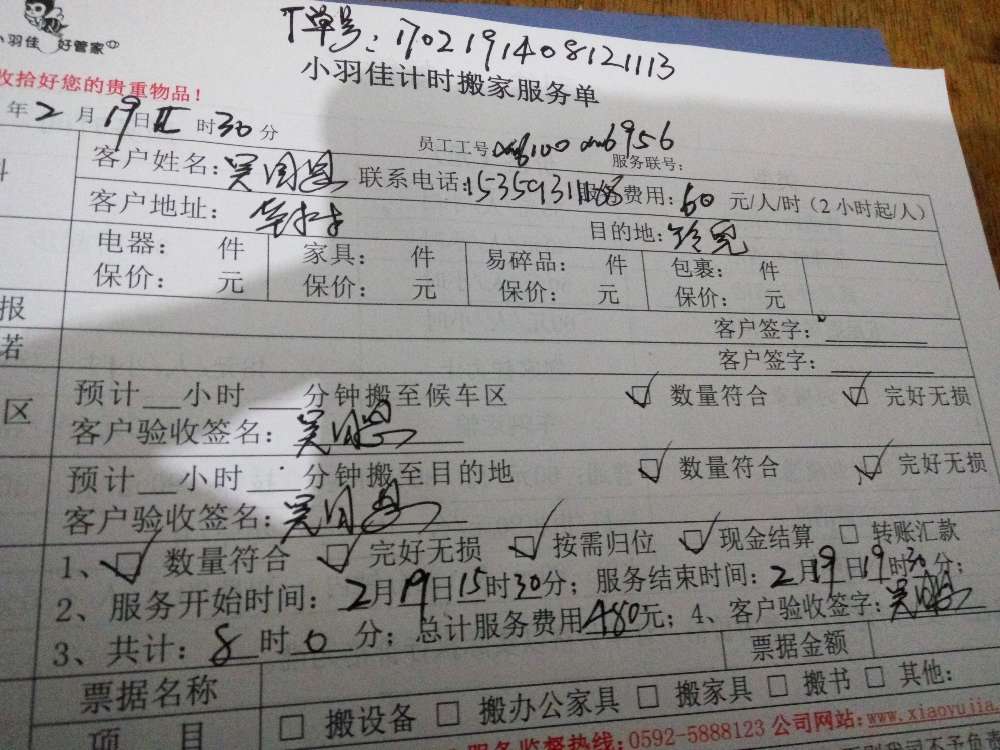 T单号：1702191408121113
小羽佳 好管家
小羽佳计时搬家服务单
收拾好您的贵重物品！
年2月19日 时30分
员工工号 6956 服务联号：
客户姓名：吴 联系电话：费用：60元/人/时（2小时起/人）
客户地址： 目的地：
电器： 件 家具： 件 易碎品： 件 包裹： 件
保价： 元 保价： 元 保价： 元 保价： 元
报 客户签字：
若 客户签字：
区 预计__小时___分钟搬至候车区 数量符合 完好无损
客户验收签名：吴
预计__小时___分钟搬至目的地 数量符合 完好无损
客户验收签名：吴
1、 数量符合 完好无损 按需归位 现金结算 转账汇款
2、服务开始时间：2月19日15时30分；服务结束时间：2月19日19时30分；
3、共计：8时0分；总计服务费用480元；4、客户验收签字：吴
票据名称 票据金额
项目 搬设备 搬办公家具 搬家具 搬书 其他：
服务监督热线：0592-5888123 公司网站：www.xiaoyujia.